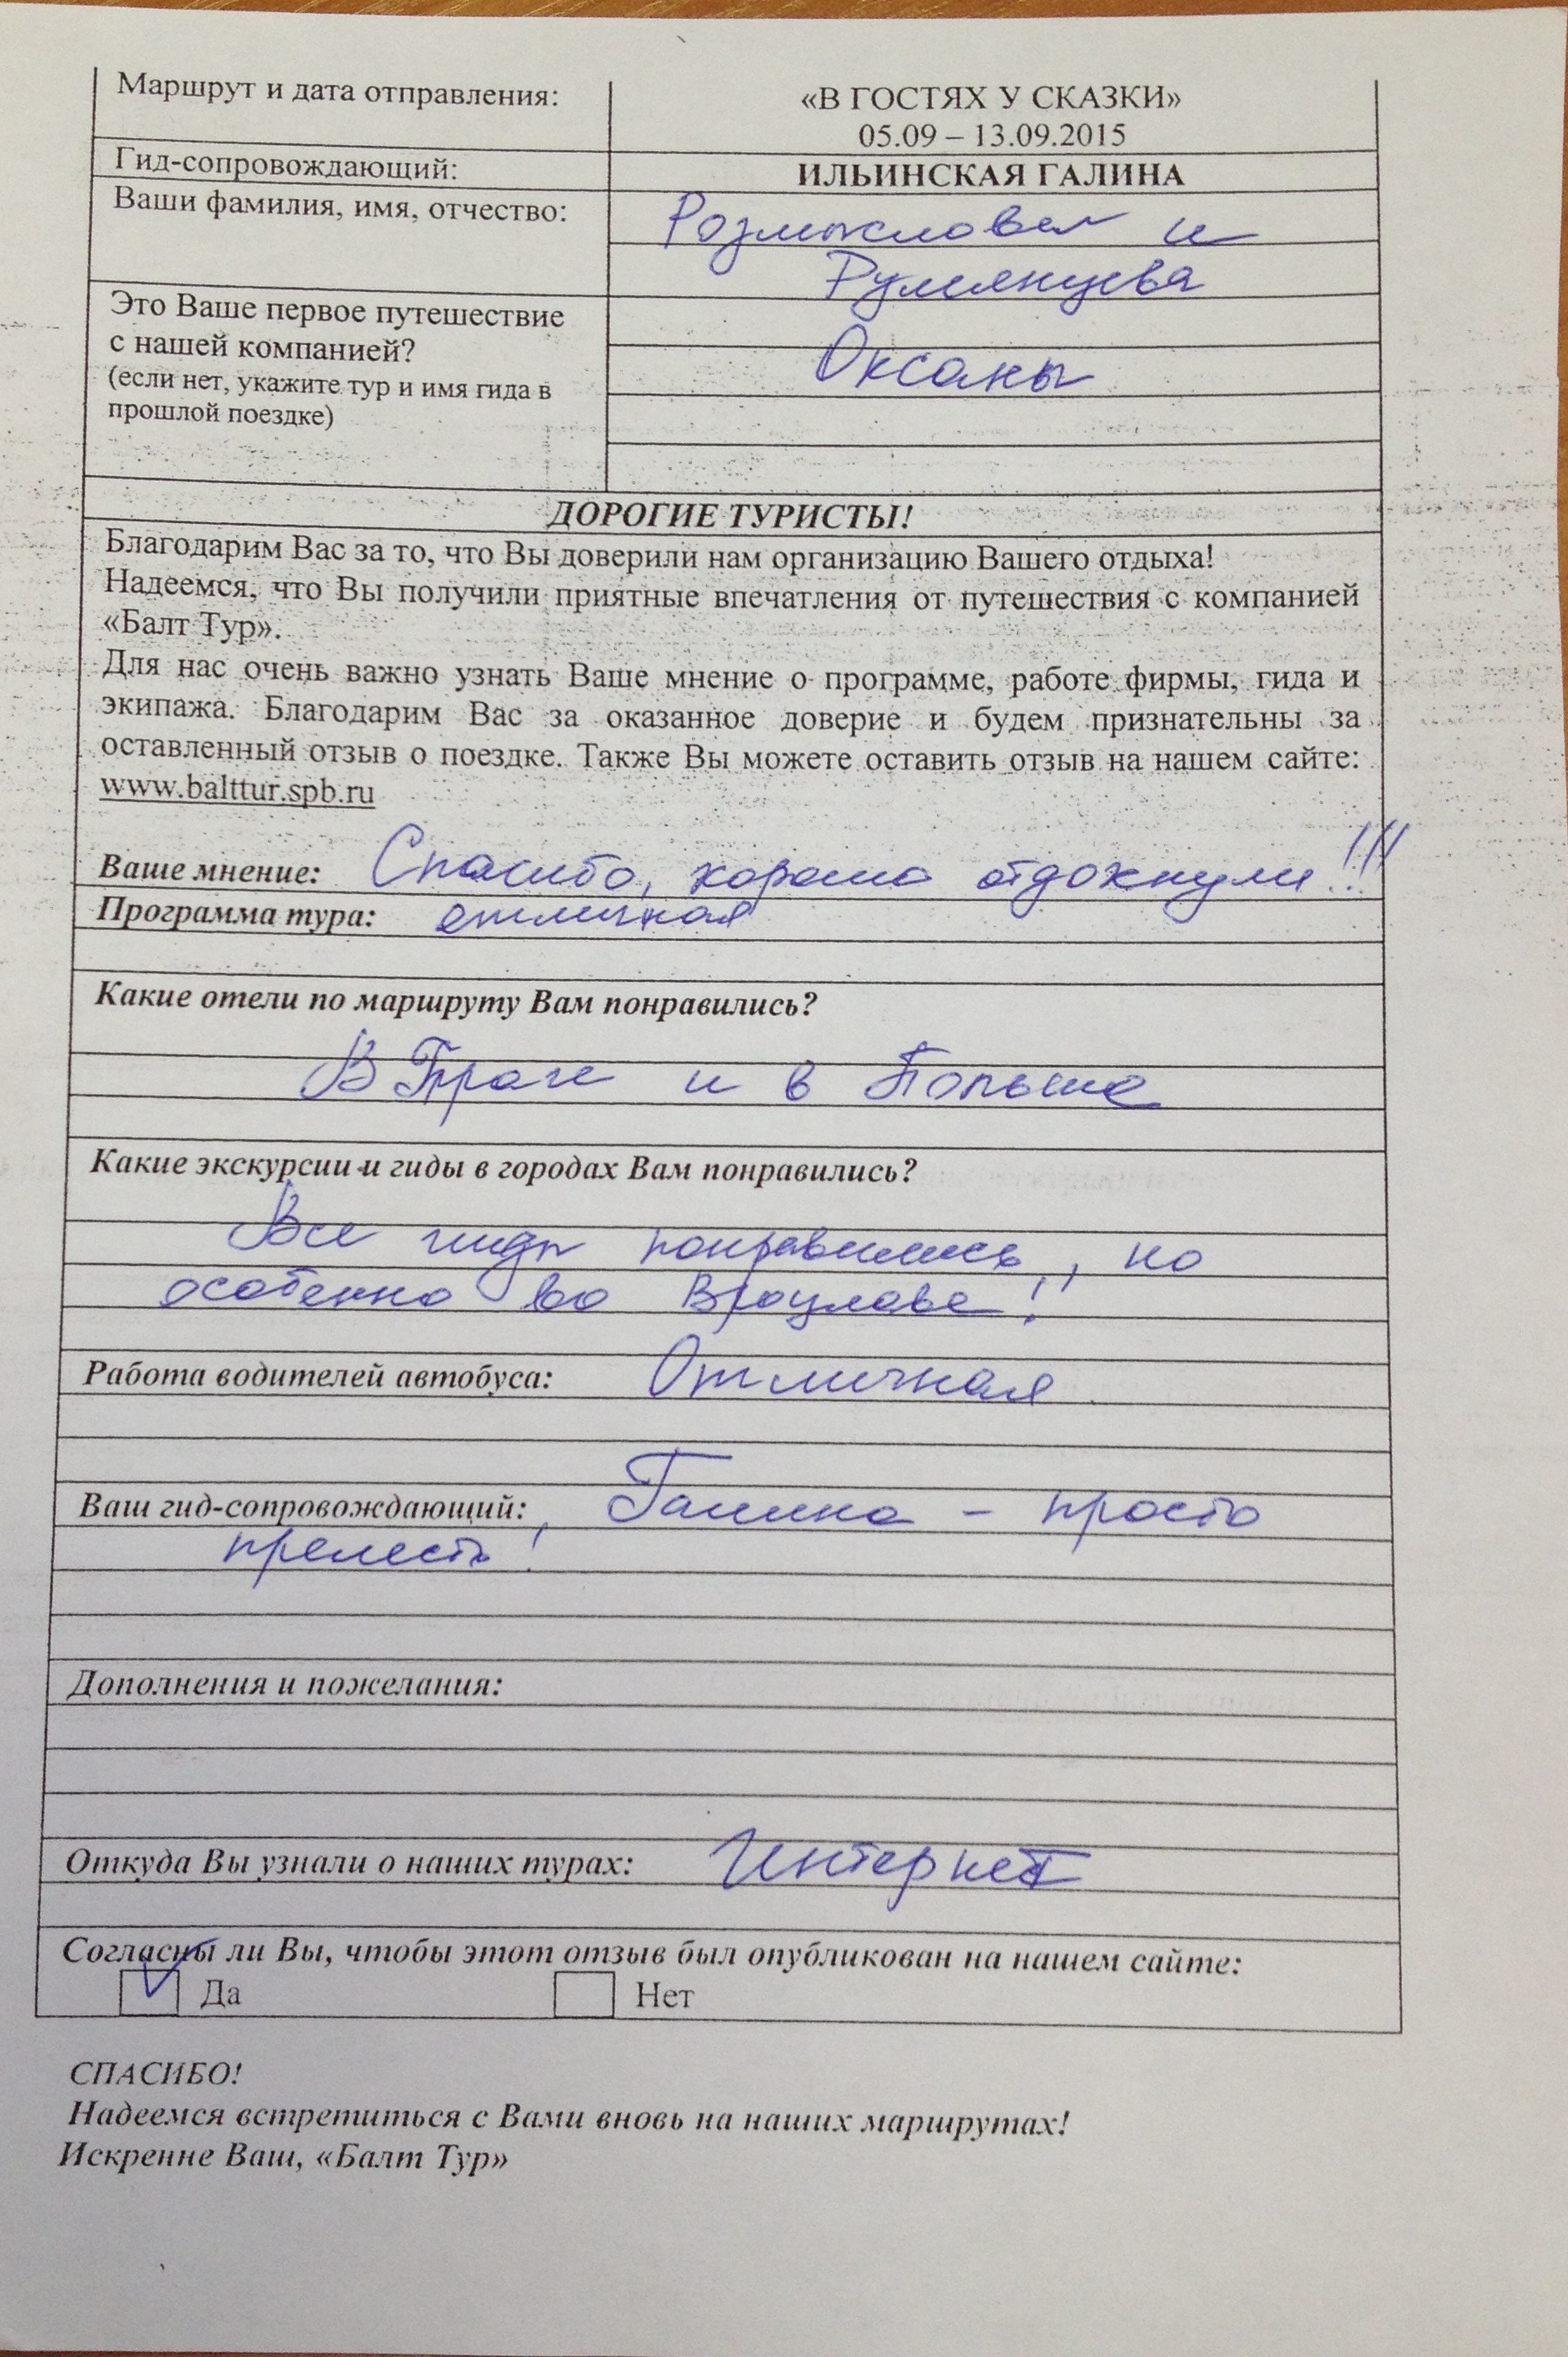 Маршрут и дата отправления:
«В ГОСТЯХ У СКАЗКИ»
05.09 – 13.09.2015
Гид-сопровождающий:
ИЛЬИНСКАЯ ГАЛИНА
Ваши фамилия, имя, отчество:
Розмыслова и
Румянцева
Оксаны
Это Ваше первое путешествие
с нашей компанией?
(если нет, укажите тур и имя гида в
прошлой поездке)
ДОРОГИЕ ТУРИСТЫ!
Благодарим Вас за то, что Вы доверили нам организацию Вашего отдыха!
Надеемся, что Вы получили приятные впечатления от путешествия с компанией
«Балт Тур».
Для нас очень важно узнать Ваше мнение о программе, работе фирмы, гида и
экипажа. Благодарим Вас за оказанное доверие и будем признательны за
оставленный отзыв о поездке. Также Вы можете оставить отзыв на нашем сайте:
www.balttur.spb.ru
Ваше мнение: Спасибо, хорошо отдохнули!!!
Программа тура: отличная
Какие отели по маршруту Вам понравились?
В Праге и в Польше
Какие экскурсии и гиды в городах Вам понравились?
Все гиды понравились, но
особенно во Вроцлаве!
Работа водителей автобуса: Отличная
Ваш гид-сопровождающий: Галина - просто
прелесть!
Дополнения и пожелания:
Откуда Вы узнали о наших турах: Интернет
Согласны ли Вы, чтобы этот отзыв был опубликован на нашем сайте:
Да Нет
СПАСИБО!
Надеемся встретиться с Вами вновь на наших маршрутах!
Искренне Ваш, «Балт Тур»